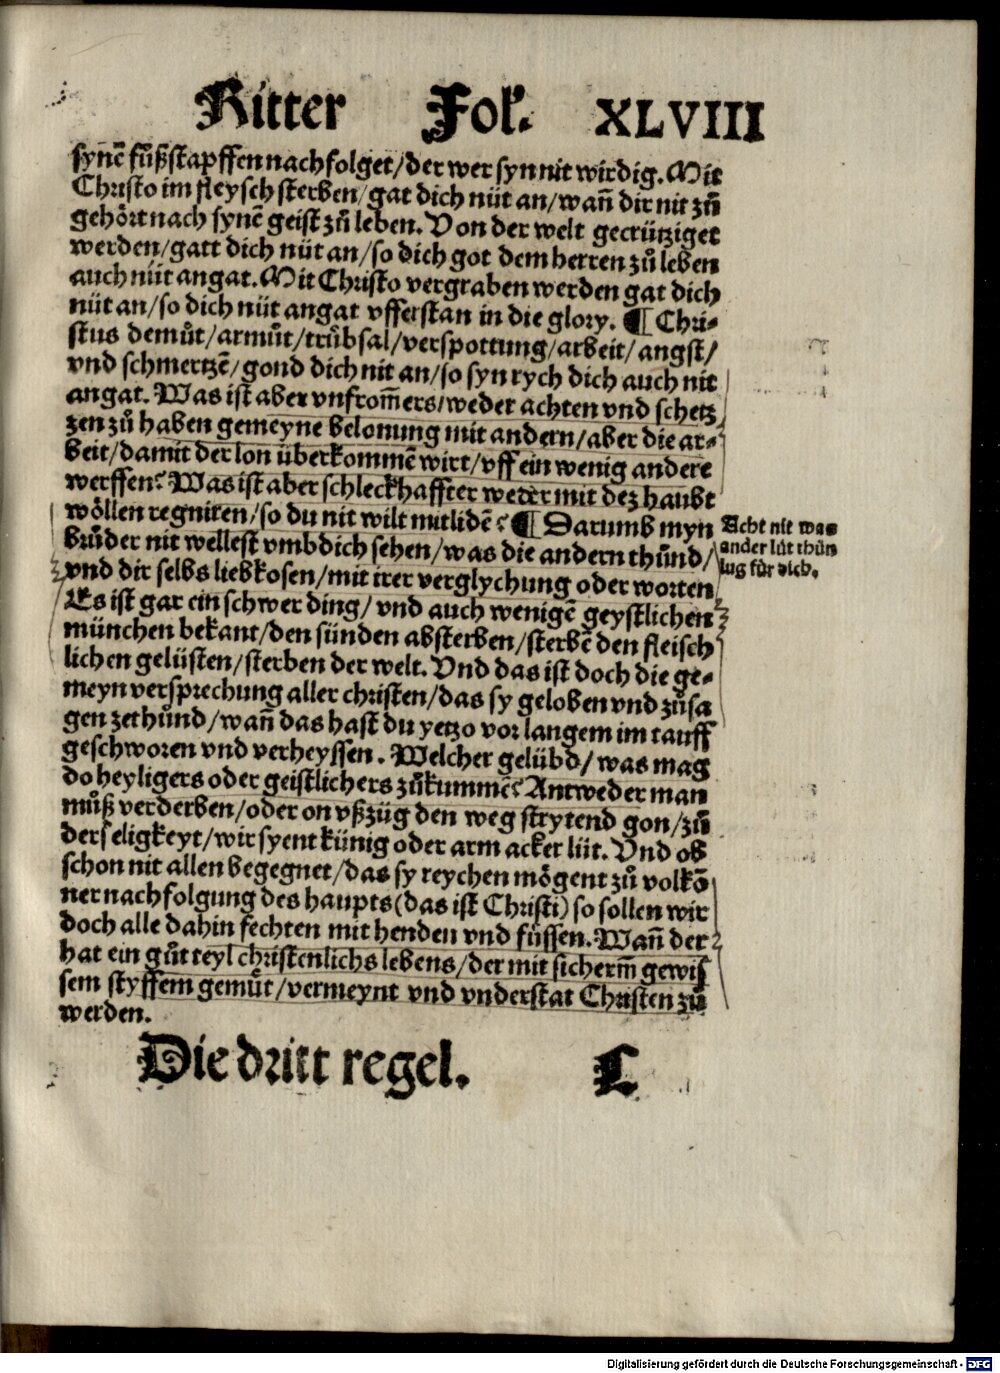 Ritter Fol. XLVIII
synē fůßstapffen nachfolget/der wer syn nit wirdig. Mit
Christo im fleysch sterben/gat dich nüt an/wañ dir nit zů
gehört nach synē geist zů leben. Von der welt gecrütziget
werden/gatt dich nüt an/so dich got dem herren zů leben
auch nüt angat. Mit Christo vergraben werden gat dich
nüt an/so dich nüt angat vfferstan in die glory. ¶ Chri-
stus demůt/armůt/trůbsal/verspottung/arbeit/angst/
vnd schmertzē/gond dich nit an/so syn rych dich auch nit
angat. Was ist aber vnfrom̄ers/weder achten vnd schetz
zen zů haben gemeyne belonung mit andern/aber die ar-
beit/damit der lon überkommē wirt/vff ein wenig andere
werffen? Was ist aber schleckhaffter weder mit dez haubt
wöllen regniren/so du nit wilt mitlidē? ¶ Darumb myn
brůder nit wellest vmb dich sehen/was die andern thůnd/
vnd dir selbs liebkosen/mit irer verglychung oder worten
Es ist gar ein schwer ding/vnd auch wenigē geystlichen
münchen bekant/den sünden absterben/sterbē den fleisch
lichen gelüsten/sterben der welt. Vnd das ist doch die ge-
meyn versprechung aller christen/das sy geloben vnd zůsa
gen zethůnd/wañ das hast du yetzo vor langem im tauff
geschworen vnd verheyssen. Welcher gelübd/was mag
do heyligers oder geistlichers zůkummē? Antweder man
můß verderben/oder on vßzüg den weg strytend gon/zů
der seligkeyt/wir syent künig oder arm acker lüt. Vnd ob
schon nit allen begegnet/das sy reychen mögent zů volkō
ner nachfolgung des haupts(das ist Christi)so sollen wir
doch alle dahin fechten mit henden vnd füssen. Wañ der
hat ein gůt teyl christenlichs lebens/der mit sicherm̄ gewis
sem styffem gemůt/vermeynt vnd vnderstat Christen zů
werden.
Acht nit was
ander lüt thůn
lug für dich.
Die dritt regel. L
Digitalisierung gefördert durch die Deutsche Forschungsgemeinschaft - DFG